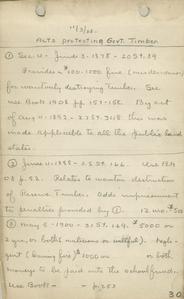 11/3/08.
Acts protecting Govt. Timber.
① Sec 4 - June 3 - 1878 - 20 St. 89
Provides $100-1000 fine (misdemeanor)
for wantonly destroying timber. See
use Book 1908 pp. 151-152. By act
of Aug 4 - 1892 - 27 St. 348 this was
made applicable to all the public land
states.
② June 4 - 1888 - 25 St. 166. Use Bk
08 p. 52. Relates to wanton destruction
of Reserve Timber. Adds imprisonment
to penalties provided by ①. 12 mo. $50
③ May 5 - 1900 - 31 St. 169. $5000 or
2 yrs, or both (malicious or willful). Negli-
gent (leaving fire) $1000 or or both
moneys to be paid into the school fund.
Use Book - p. 253
30